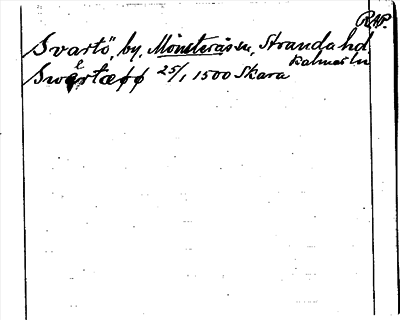 RAP.
Svartö, by, Mönsterås sn, Stranda hd
Kalmar ln
Swertøø 25/1 1500 Skara